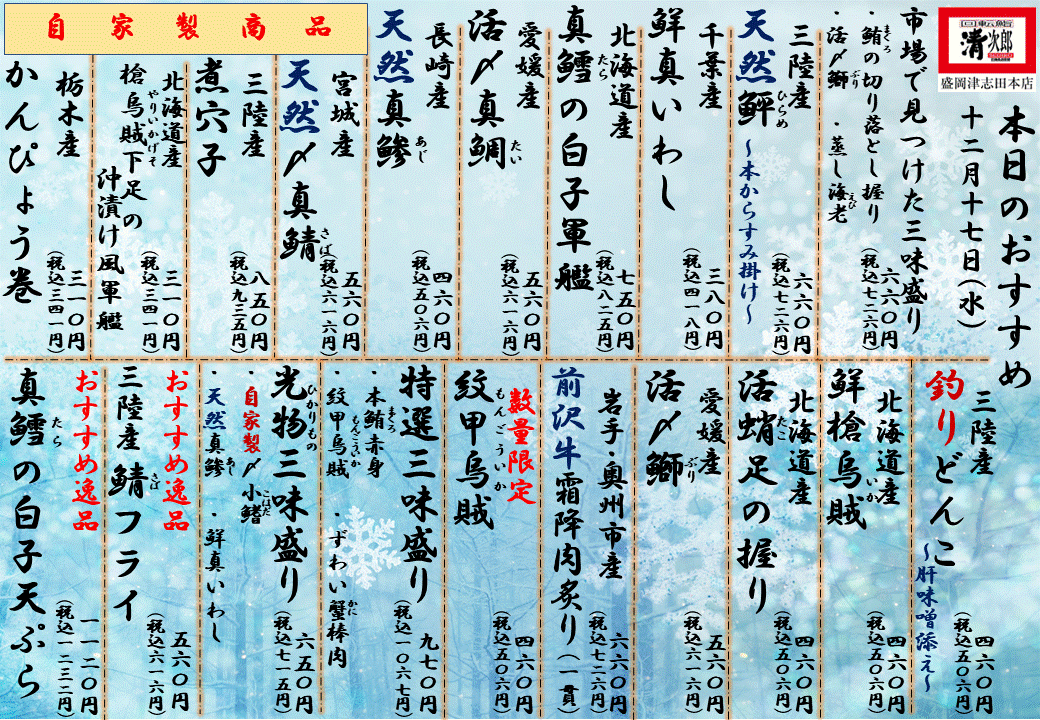 回転鮨
清次郎
盛岡津志田本店
本日のおすすめ
十二月十七日(水)
市場で見つけた三味盛り
・鮪の切り落とし握り
まぐろ
・活〆鰤
ぶり
・蒸し海老
えび
六六〇円
(税込七二六円)
三陸産
天然鮃
ひらめ
～本からすみ掛け～
六六〇円
(税込七二六円)
千葉産
鮮真いわし
三八〇円
(税込四一八円)
北海道産
真鱈の白子軍艦
たら
七五〇円
(税込八二五円)
愛媛産
活〆真鯛
たい
五六〇円
(税込六一六円)
長崎産
天然真鯵
あじ
四六〇円
(税込五〇六円)
自家製商品
宮城産
天然〆真鯖
さば
五六〇円
(税込六一六円)
三陸産
煮穴子
八五〇円
(税込九三五円)
北海道産
槍烏賊下足の
やりいかげそ
沖漬け風軍艦
三一〇円
(税込三四一円)
栃木産
かんぴょう巻
三一〇円
(税込三四一円)
三陸産
釣りどんこ
～肝味噌添え～
四六〇円
(税込五〇六円)
北海道産
鮮槍烏賊
いか
四六〇円
(税込五〇六円)
北海道産
活蛸足の握り
たこ
四六〇円
(税込五〇六円)
愛媛産
活〆鰤
ぶり
五六〇円
(税込六一六円)
岩手・奥州市産
前沢牛霜降肉炙り(一貫)
六六〇円
(税込七二六円)
数量限定
紋甲烏賊
もんごういか
四六〇円
(税込五〇六円)
特選三味盛り
・本鮪赤身
まぐろ
・紋甲烏賊
もんごういか
・ずわい蟹棒肉
かに
九七〇円
(税込一〇六七円)
光物三味盛り
ひかりもの
・自家製〆小鰭
こはだ
・天然真鯵
あじ
・鮮真いわし
六五〇円
(税込七一五円)
おすすめ逸品
三陸産鯖フライ
さば
五六〇円
(税込六一六円)
おすすめ逸品
真鱈の白子天ぷら
たら
一一二〇円
(税込一二三二円)